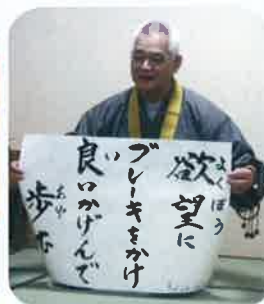 欲望に
よくぼう
ブレーキをかけ
良いかげんで
い
歩む
あゆ